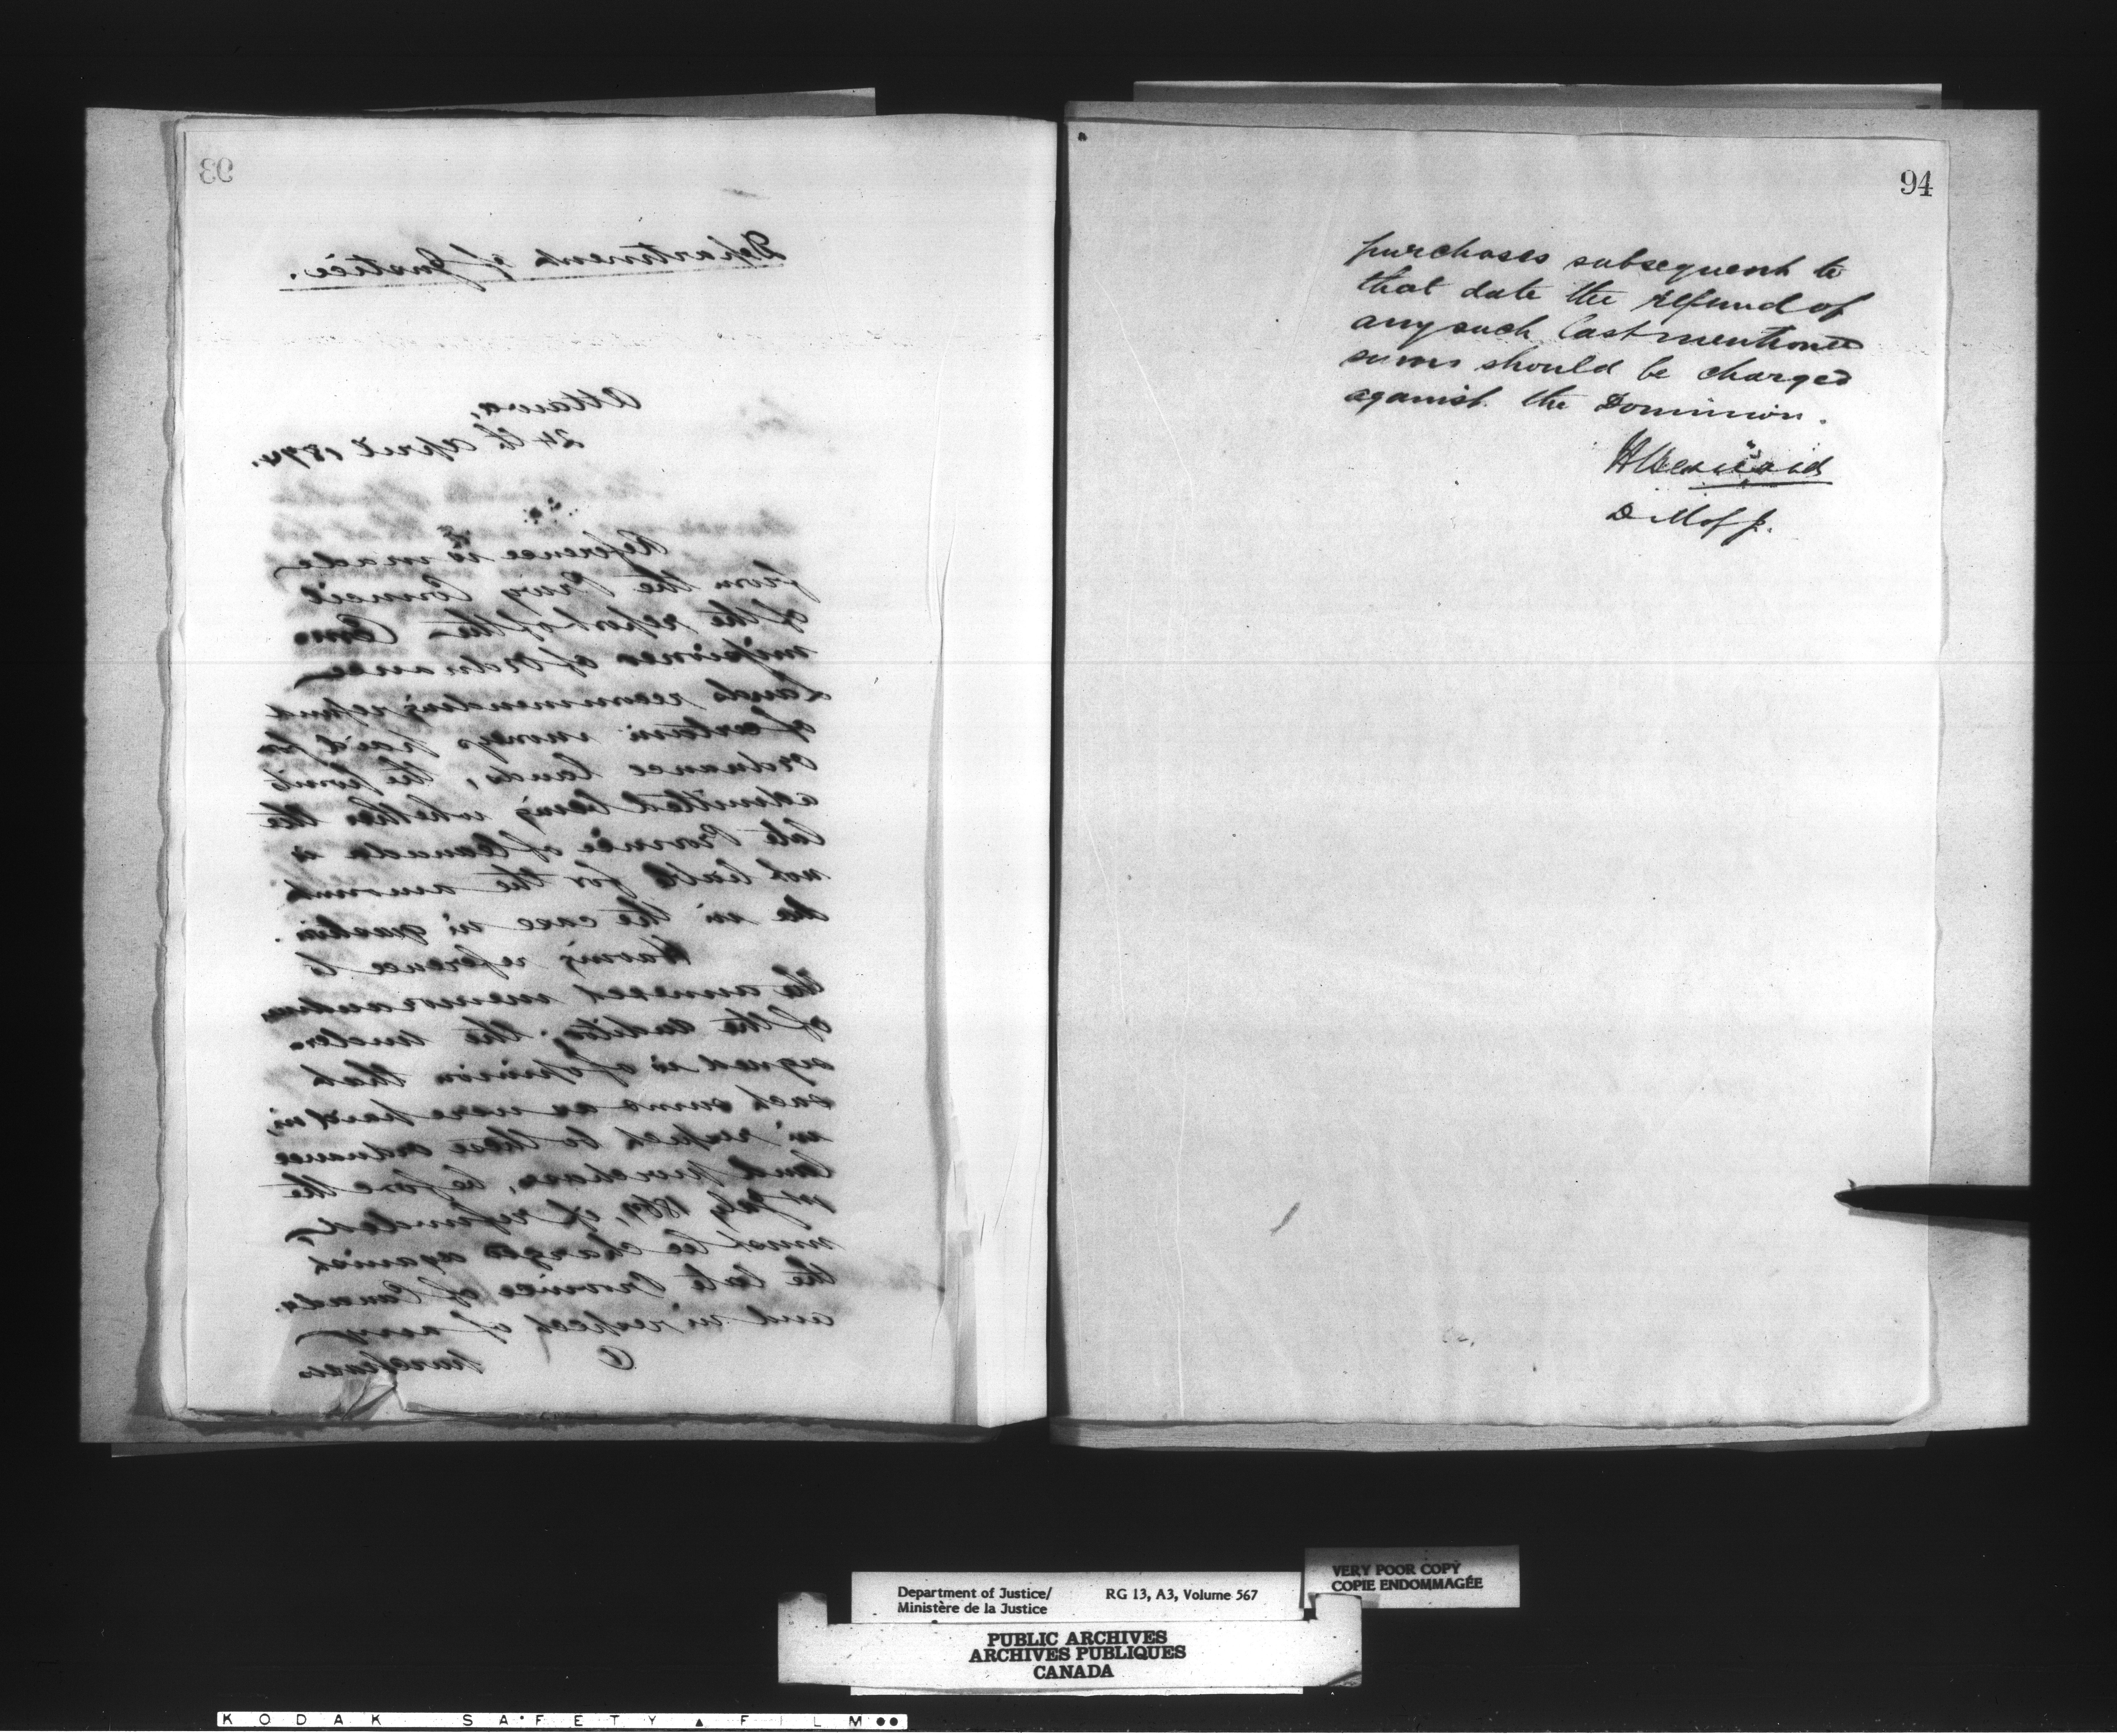 93
Department of Justice.
Ottawa,
24th April 1874.
Reference is made
from the Privy Council
of the report of the Com
missioner of Ordnance
Lands recommending refund
of certain moneys paid for
Ordnance Lands, the point
admitted being whether the
late Province of Canada is
not liable for the amount
in the case in question.
Having reference to
the annexed memorandum
of the Auditor; the under
signed is of opinion that
such sums as were paid in
in respect to these ordnance
land purchases, before the
1st July 1867, if refunded
must be charged against
the late Province of Canada.
and in respect of any
purchases
94
purchases subsequent to
that date the refund of
any such last mentioned
sums should be charged
against the Dominion.
H Bernard
D M of J.
Department of Justice/
Ministère de la Justice
RG 13, A3, Volume 567
VERY POOR COPY
COPIE ENDOMMAGÉE
PUBLIC ARCHIVES
ARCHIVES PUBLIQUES
CANADA
KODAK SAFETY FILM